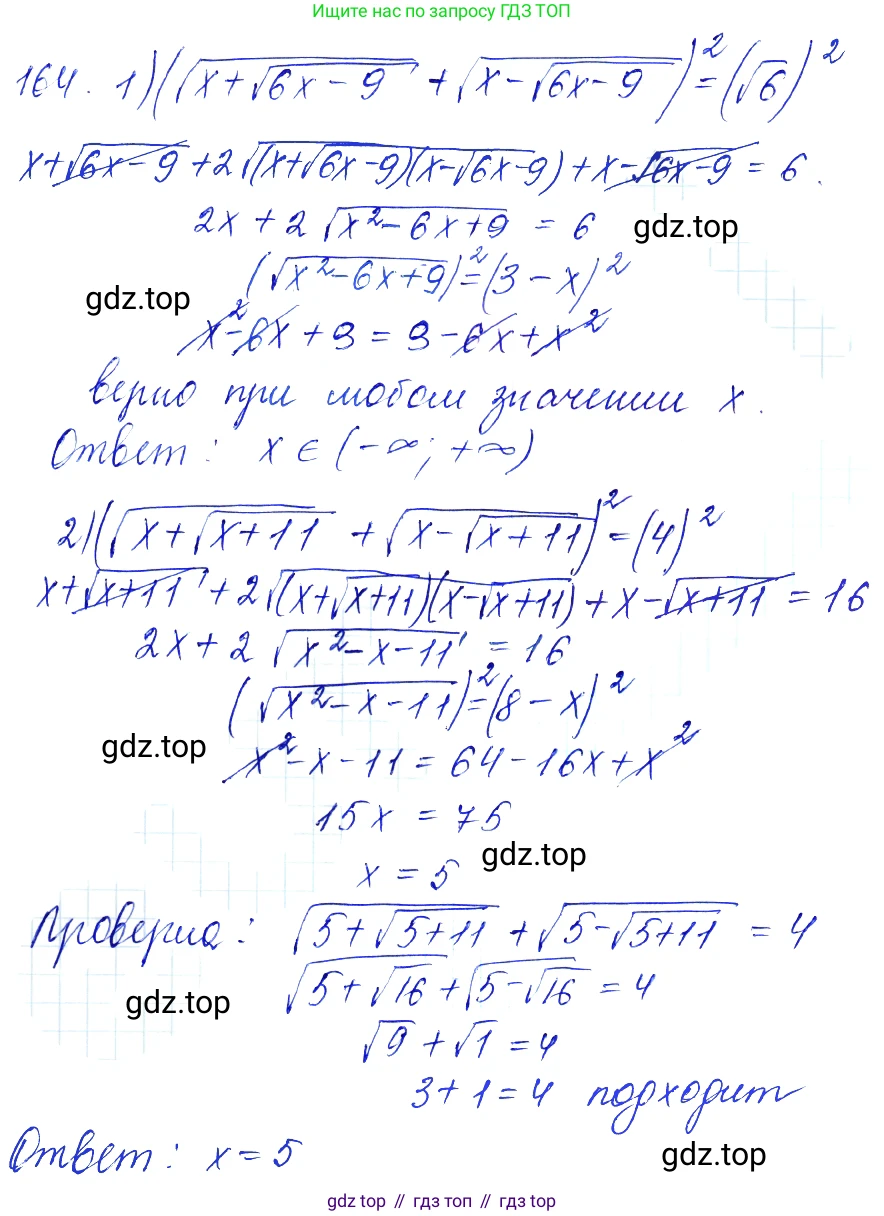 Ищите нас по запросу ГДЗ ТОП
164. 1) (√(x+√(6x-9)) + √(x-√(6x-9)))² = (√6)²
x+√(6x-9) + 2√((x+√(6x-9))(x-√(6x-9))) + x-√(6x-9) = 6.
2x + 2√(x²-6x+9) = 6
gdz.top
(√(x²-6x+9))² = (3-x)²
gdz.top
x²-6x+9 = 9-6x+x²
верно при любом значении x.
Ответ: x ∈ (-∞; +∞)
2) (√(x+√(x+11)) + √(x-√(x+11)))² = (4)²
x+√(x+11) + 2√((x+√(x+11))(x-√(x+11))) + x-√(x+11) = 16
2x + 2√(x²-x-11) = 16
(√(x²-x-11))² = (8-x)²
gdz.top
x²-x-11 = 64-16x+x²
15x = 75
gdz.top
x = 5
Проверка: √(5+√(5+11)) + √(5-√(5+11)) = 4
gdz.top
√(5+√16) + √(5-√16) = 4
√9 + √1 = 4
3+1=4 подходит
Ответ: x = 5
gdz.top
gdz top // гдз топ // гдз top